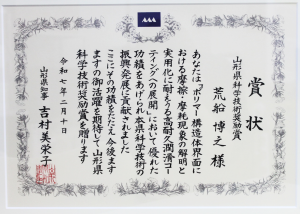 賞状
山形県科学技術奨励賞
荒船博之様
あなたは「ポリマー構造体界面に
おける摩擦・摩耗現象の解明と
実用化に耐えうる高耐久潤滑コー
ティングへの展開」において優れた
功績をあげられ本県科学技術の
振興発展に貢献されました
ここにその功績をたたえ今後ます
ますの御活躍を期待して山形県
科学技術奨励賞を贈ります
令和七年二月十日
山形県知事 吉村美栄子